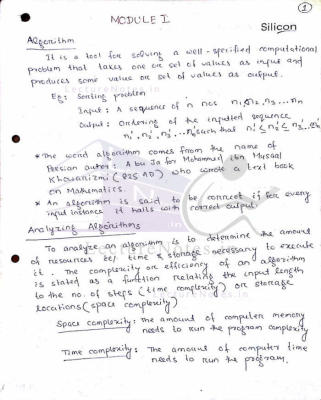 1
MODULE I
Silicon
Algorithm
It is a tool for solving a well-specified computational
problem that takes one or set of values as input and
produces some value or set of values as output.
Eg: Sorting problem
Input: A sequence of n nos n1, n2, n3...nn
Output: Ordering of the inputed sequence
n1', n2', n3'...nn' such that n1' ≤ n2' ≤ n3'...≤ nn'
* The word algorithm comes from the name of
Persian author: Abu Ja'for Mohammed ibn Musaal
Khowarizmi (825 AD) who wrote a text book
on Mathematics.
* An algorithm is said to be correct if for every
input instance it halts with correct output.
Analyzing Algorithms
To analyze an algorithm is to determine the amount
of resources (time & storage) necessary to execute
it. The complexity or efficiency of an algorithm
is stated as a function relating the input length
to the no. of steps (time complexity) or storage
locations (space complexity)
Space complexity: The amount of computer memory
needs to run the program complexity
Time complexity: The amount of computer time
needs to run the program.
LectureNotes.in